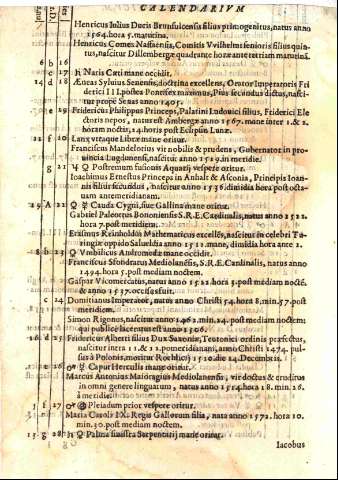 CALENDARIVM
Henricus Iulius Ducis Brunsuicensis filius primogenitus, natus anno
1564. hora 5. matutina.
Henricus Comes Nassaensis, Comitis Vvilhelmi senioris filius quin-
tus, nascitur Dillembergæ quadrante horæ ante tertiam matutinā.
6 b 16
c 17 ♄ Naris Cæti mane occidit.
14 d 18 Æneas Syluius Senensis, doctrina excellens, Orator Imperatoris Fri
derici III. postea Pontifex maximus, Pius secundus dictus, nasci-
tur prope Senas anno 1405.
3 e 19 Fridericus Philippus Princeps, Palatini Ludouici filius, Friderici Ele
ctoris nepos, natus est Ambergæ anno 1567. mane inter 1. & 2.
horam noctis, 24. horis post Eclipsin Lunæ.
22 f 20 Lanx vtraque Libræ mane oritur.
Franciscus Mandelorius vir nobilis & prudens, Gubernator in pro
uincia Lugdunensi, nascitur anno 1529. in meridie.
g 21 ♃ ♀ Postremum fusionis Aquarij vespere oritur.
Ioachimus Ernestus Princeps in Anhalt & Ascania, Principis Ioan-
nis filius secundus, nascitur anno 1536. dimidia hora post octa-
uam antemeridianam.
19 A 22 ♀ ☿ Cauda Cygni, siue Gallina mane oritur.
Gabriel Paleotus Bononiensis S.R.E. Cardinalis, natus anno 1522.
hora 7. post meridiem.
Erasmus Reinholdus Mathematicus excellens, nascitur in celebri Tu-
ringiæ oppido Salueldia anno 1511. mane, dimidia hora ante 2.
8 b 23 ♀ Vmbilicus Andromedæ mane occidit.
Franciscus Sfondratus Mediolanēsis, S.R.E. Cardinalis, natus anno
1494. hora 5. post mediam noctem.
Gaspar Vicomercatus, natus anno 1521 hora 5. post mediā noctē.
& anno 1557. occisus fuit.
c 24 Domitianus Imperator, natus anno Christi 54. hora 8. min. 57. post
meridiem.
Simon Rigonus, nascitur anno 1462. min. 24. post mediam noctem:
qui publicè laceratus est anno 1506.
16 d 25 Fridericus Alberti filius Dux Saxoniæ, Teutonici ordinis præfectus,
nascitur inter 1 & 12. pomeridianam, anno Christi 1474. pul-
sus à Polonis, moritur Rochlicij 1510. die 14. Decembris.
5 e 26 Caput Herculis mane oritur.
Marcus Antonius Maioragius Mediolanensis, vir doctus & eruditus
in omni genere linguarum, natus anno 1514. hora 18. min. 16.
à meridie.
f 27 Pleiadum prior vespere oritur.
Maria Caroli IX. Regis Gallorum filia, nata anno 1572. hora 10.
min. 30. post mediam noctem.
13 g 28 ♄ ♀ Palma sinistra Serpentarij mane oritur.
Iacobus